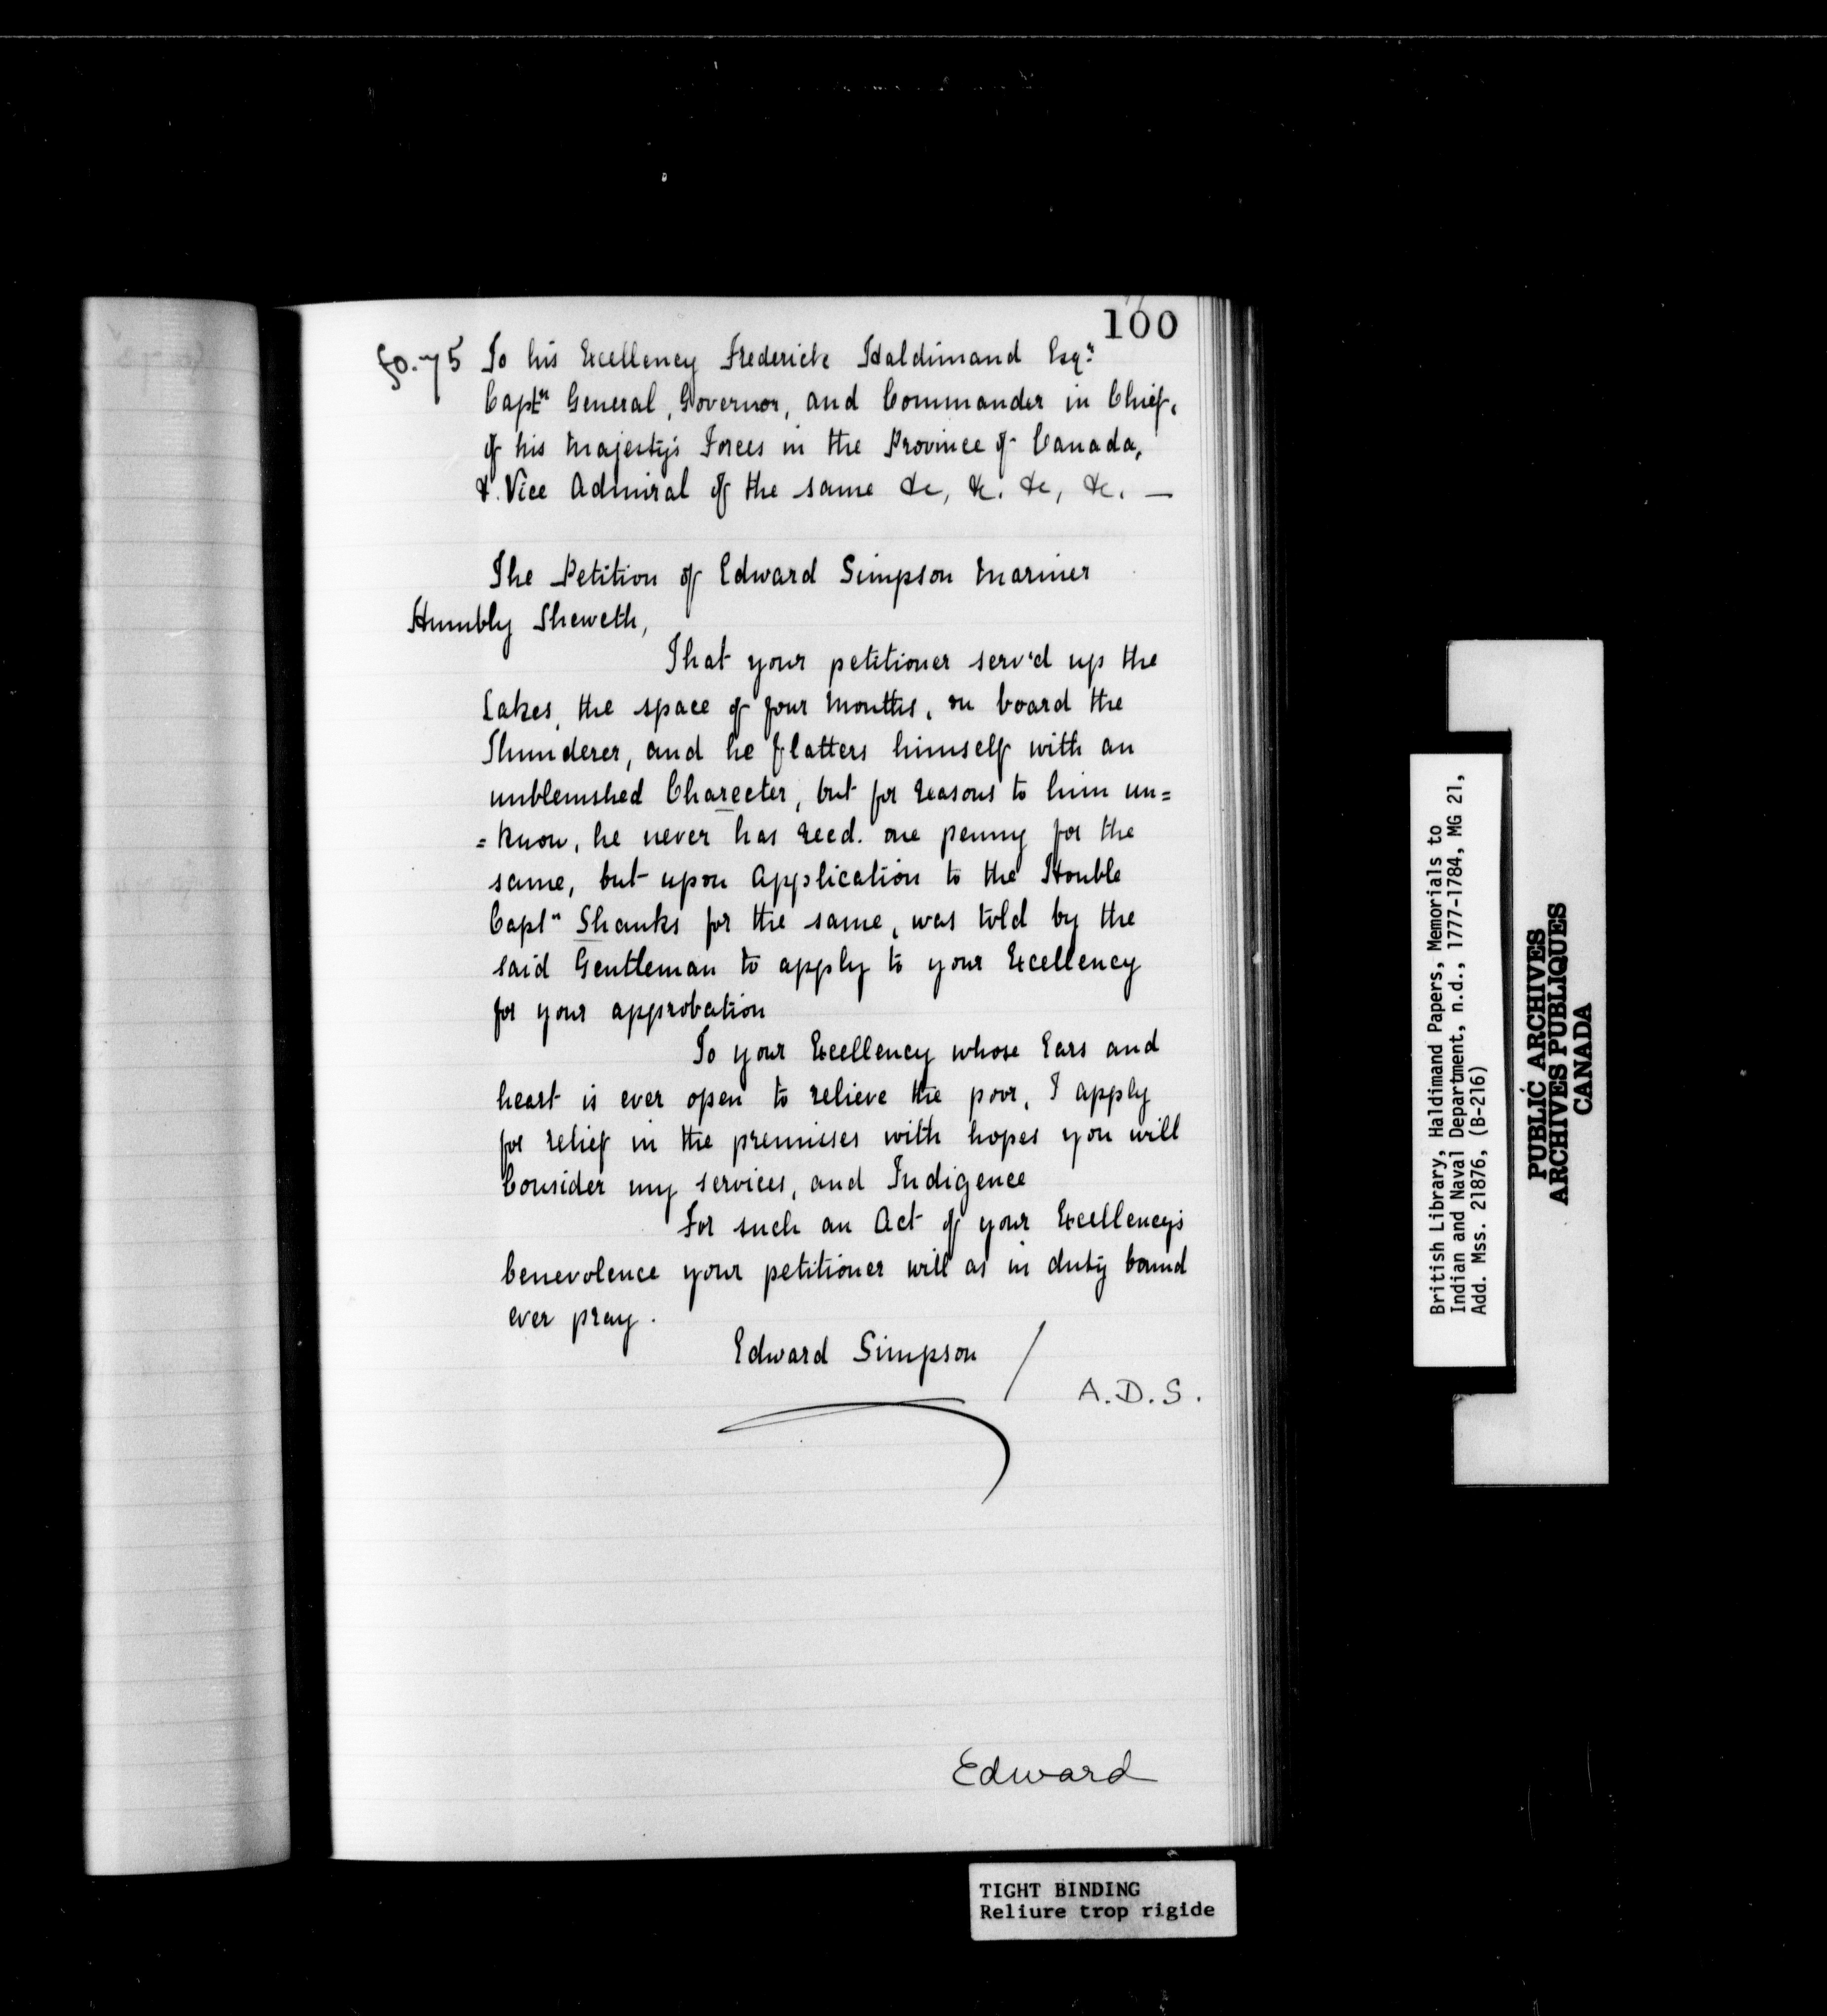 100
fo. 75 To his Excellency Frederick Haldimand Esqr
Captn General, Governor, and Commander in Chief,
of his Majesty's Forces in the Province of Canada,
&. Vice Admiral of the same &c, &c. &c, &c. —
The Petition of Edward Simpson Mariner
Humbly Sheweth,
That your petitioner serv'd up the
Lakes, the space of four Months, on board the
Thunderer, and he flatters himself with an
unblemished Charecter, but for reasons to him un=
=know, he never has recd. one penny for the
same, but upon Application to the Honble
Captn Shanks for the same, was told by the
said Gentleman to apply to your Excellency
for your approbation
To your Excellency whose Ears and
heart is ever open to relieve the poor, I apply
for relief in the premisses with hopes you will
Consider my services, and Indigence
For such an Act of your Excellency's
benevolence your petitioner will as in duty bound
ever pray.
Edward Simpson /
A.D.S.
Edward
British Library, Haldimand Papers, Memorials to
Indian and Naval Department, n.d., 1777-1784, MG 21,
Add. Mss. 21876, (B-216)
PUBLIC ARCHIVES
ARCHIVES PUBLIQUES
CANADA
TIGHT BINDING
Reliure trop rigide